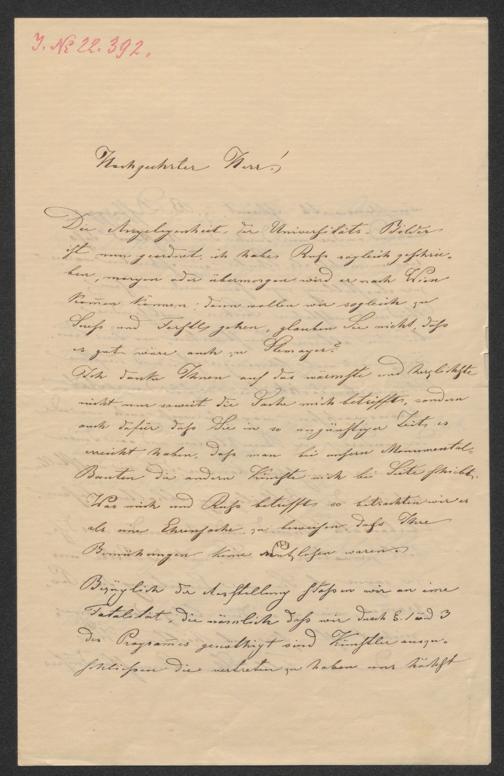 J. № 22.392.
Hochgeehrter Herr!
Die Angelegenheit der Universitäts-Bilder
ist nun geordnet, ich habe Russ sogleich geschrie-
ben, morgen oder übermorgen wird er nach Wien
kommen können, dann wollen wir sogleich zu
Suess und Ferstl gehen, glauben Sie nicht, daß
es gut wäre auch zu
Ich danke Ihnen auf das wärmste und herzlichste
nicht nur soweit die Sache mich betrifft, sondern
auch dafür daß Sie in so ungünstiger Zeit es
erreicht haben, daß man bei unsern Monumental-
Bauten die andern Künste nicht bei Seite schiebt.
Was mich und Russ betrifft, so betrachten wir es
als eine Ehrensache zu beweisen daß Ihre
Bemühungen keine nutzlosen waren.
Bezüglich der Ausstellung stossen wir an eine
Fatalität, die nämlich daß wir durch § 1 und 3
des Programmes genöthigt sind Künstler auszu-
schliessen die vertreten zu haben uns höchst